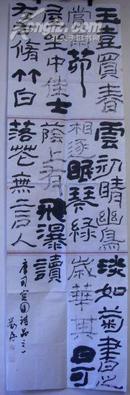 玉壺買春
賞雨茆
屋坐中佳士
左右脩竹白
雲初晴幽鳥
相逐眠琴綠
蔭上有飛瀑
落花無言人
淡如菊書之
歲華其曰可
讀
唐司空圖詩品之一